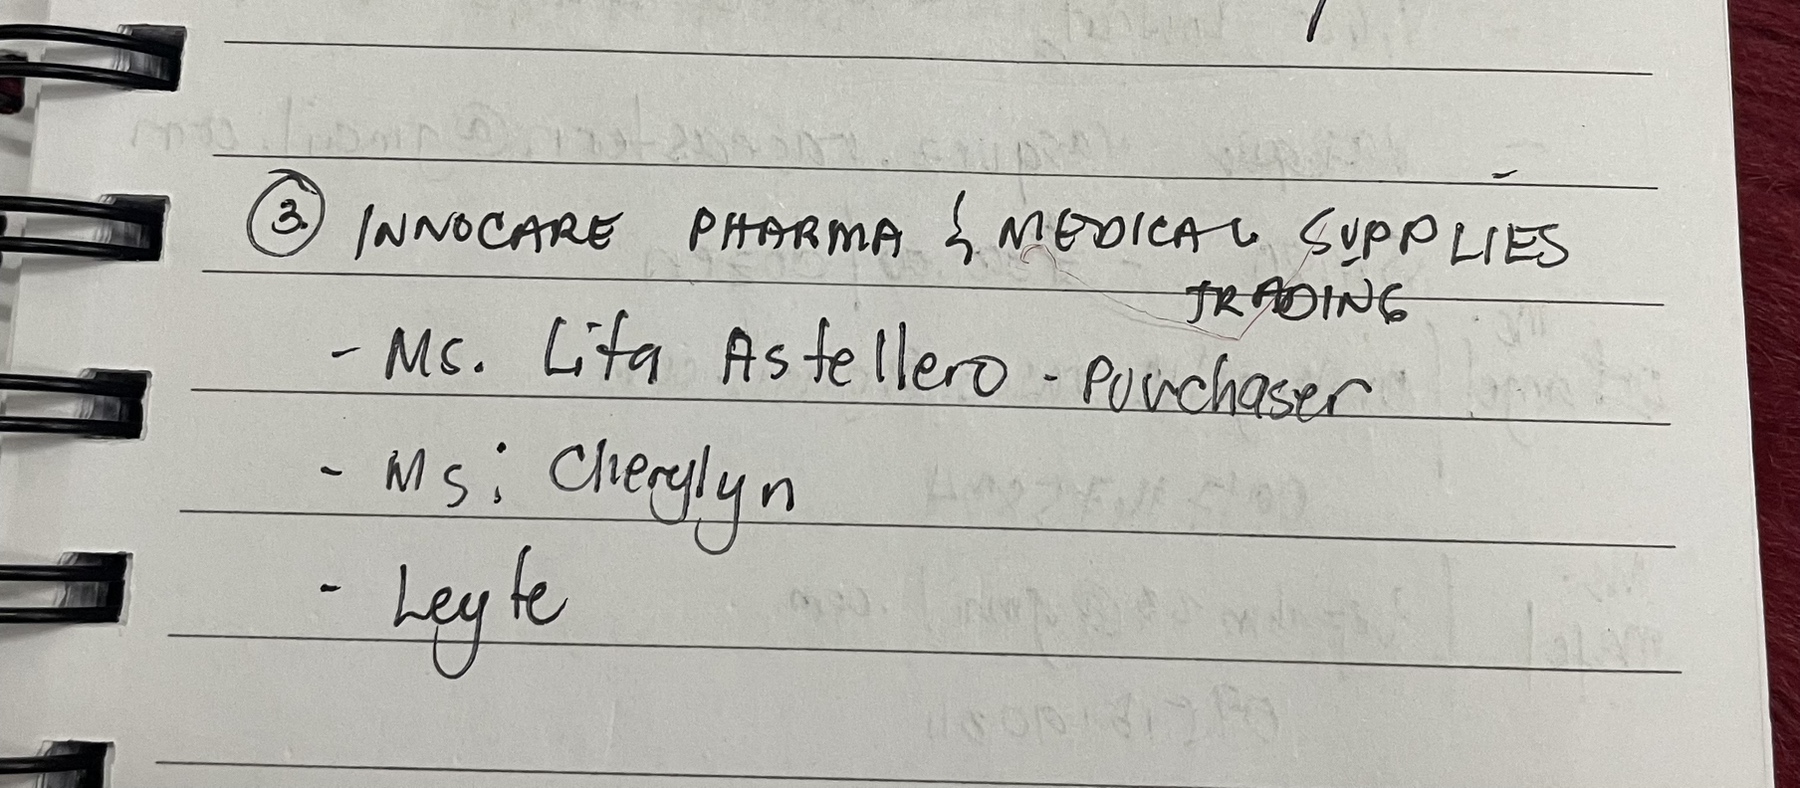 3. INNOCARE PHARMA & MEDICAL SUPPLIES
TRADING
- Ms. Lita Astellero - Purchaser
- Ms. Cherylyn
- Leyte